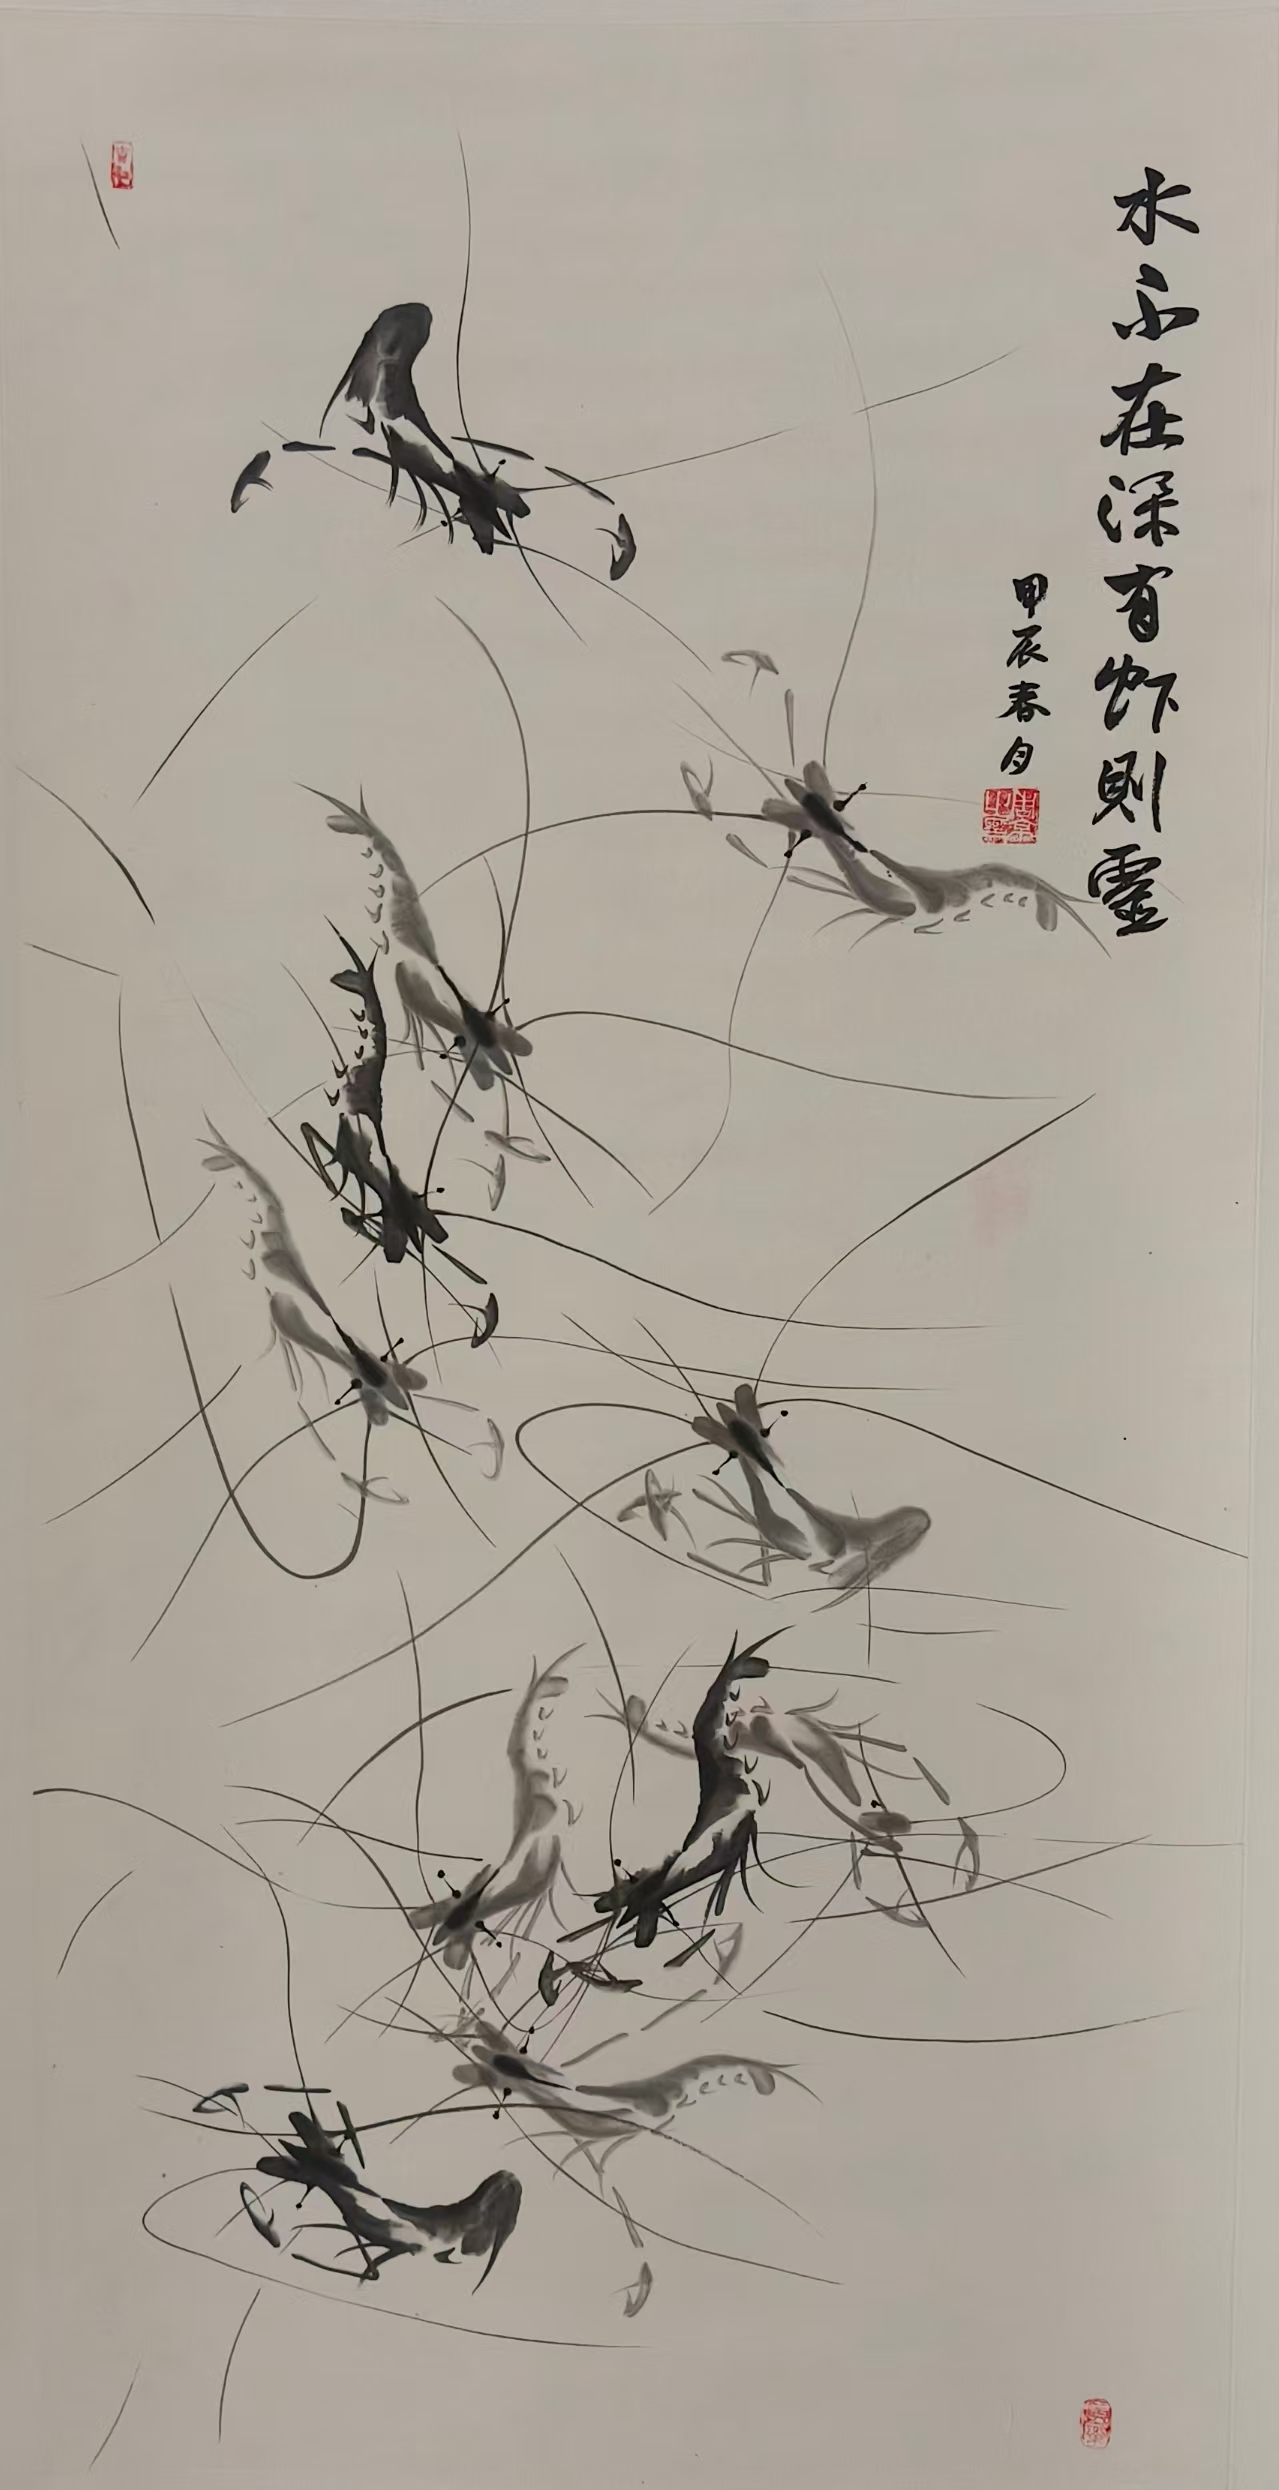 水不在深有虾則靈
甲辰春月